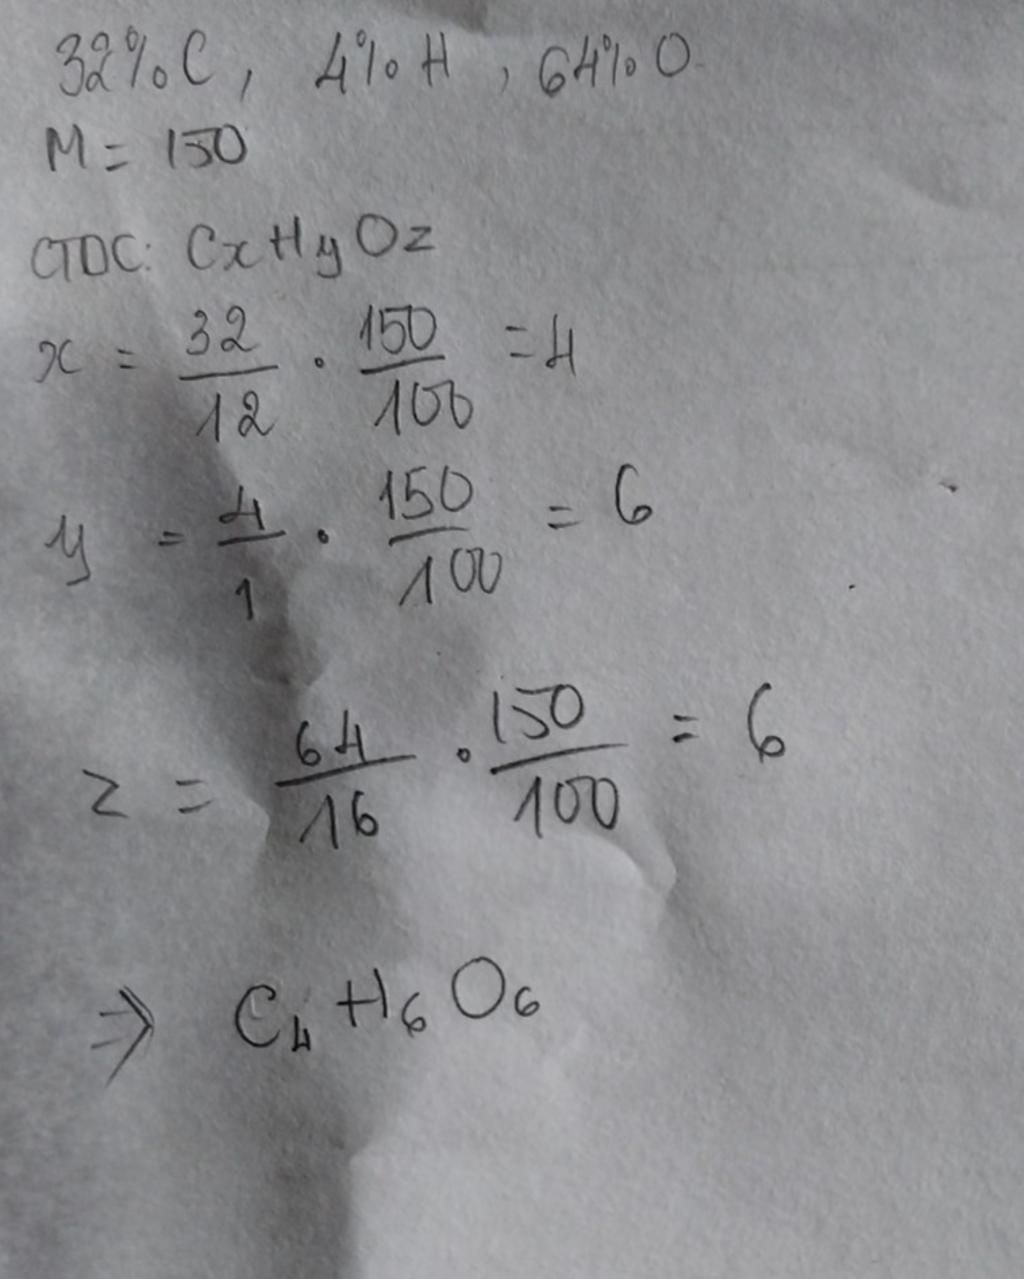 32% C, 4% H, 64% O
M = 150
CTDC: CxHyOz
x = 32/12 · 150/100 = 4
y = 4/1 · 150/100 = 6
z = 64/16 · 150/100 = 6
⇒ C₄H₆O₆